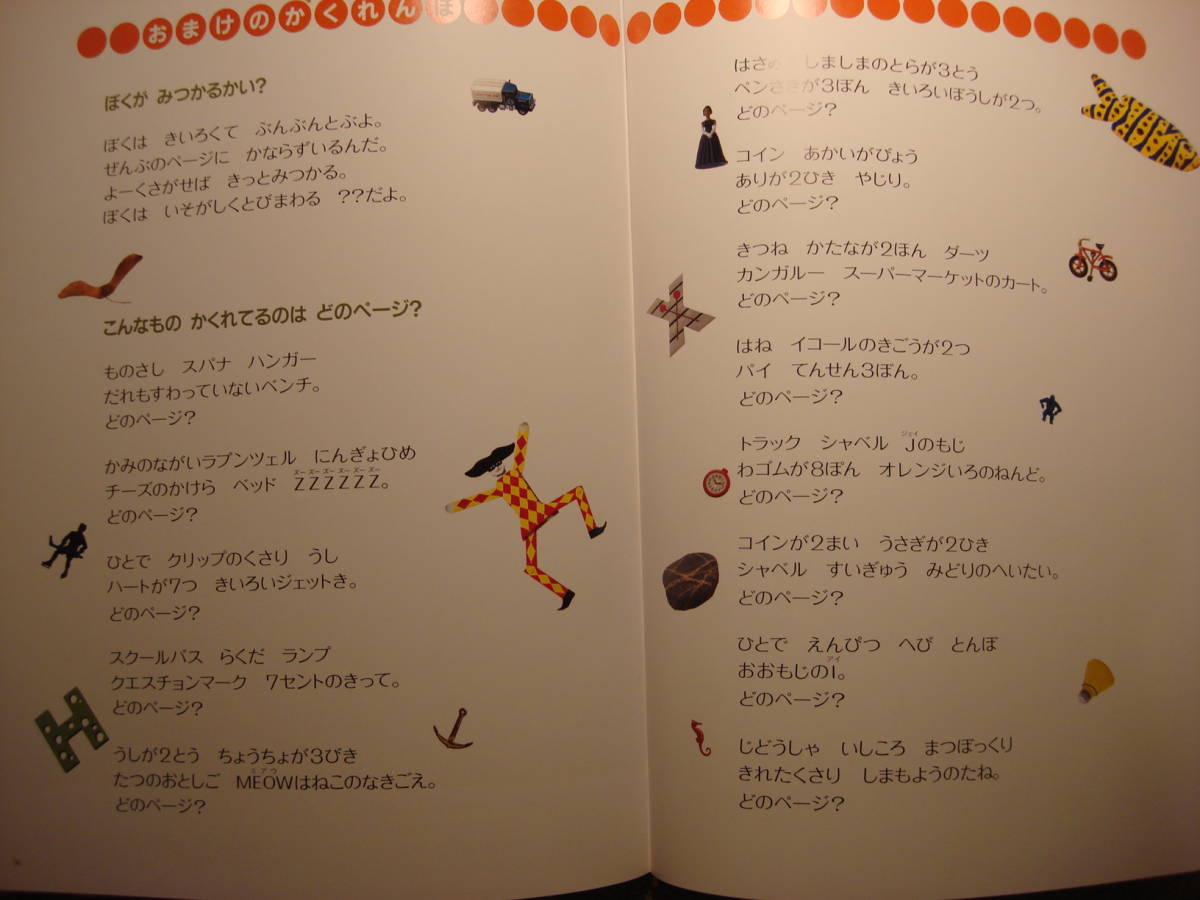 おまけのかくれんぼ
ぼくが みつかるかい?
ぼくは きいろくて ぶんぶんとぶよ。
ぜんぶのページに かならずいるんだ。
よーくさがせば きっとみつかる。
ぼくは いそがしくとびまわる ??だよ。
こんなもの かくれてるのは どのページ?
ものさし スパナ ハンガー
だれもすわっていないベンチ。
どのページ?
かみのながいラプンツェル にんぎょひめ
チーズのかけら ベッド ZZZZZZ。
ズーズーズーズーズーズー
どのページ?
ひとで クリップのくさり うし
ハートが7つ きいろいジェットき。
どのページ?
スクールバス らくだ ランプ
クエスチョンマーク 7セントのきって。
どのページ?
うしが2とう ちょうちょが3びき
たつのおとしご MEOWはねこのなきごえ。
ミアウ
どのページ?
はさみ しましまのとらが3とう
ペンさきが3ぼん きいろいぼうしが2つ。
どのページ?
コイン あかいがびょう
ありが2ひき やじり。
どのページ?
きつね かたなが2ほん ダーツ
カンガルー スーパーマーケットのカート。
どのページ?
はね イコールのきごうが2つ
パイ てんせん3ぼん。
どのページ?
トラック シャベル Jのもじ
ジェイ
わゴムが8ぽん オレンジいろのねんど。
どのページ?
コインが2まい うさぎが2ひき
シャベル すいぎゅう みどりのへいたい。
どのページ?
ひとで えんぴつ へび とんぼ
おおもじのI。
アイ
どのページ?
じどうしゃ いしころ まつぼっくり
きれたくさり しまもようのたね。
どのページ?